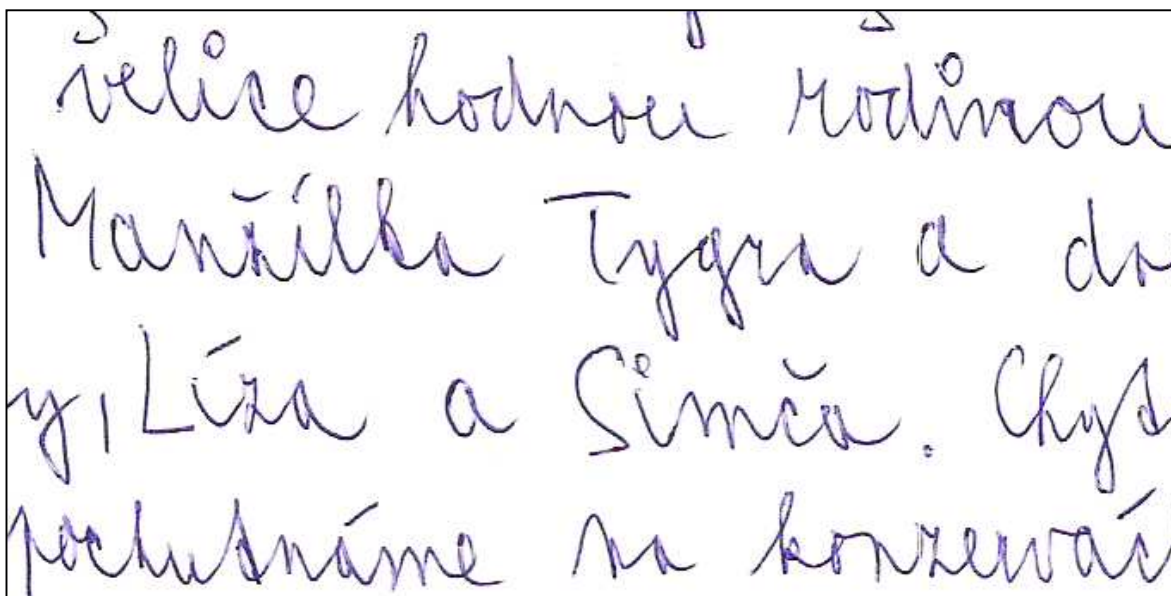 velice hodnou rodinou
Mančilka Tygra a do
y, Líza a Simča. Chyt
pochutnáme na konzervác